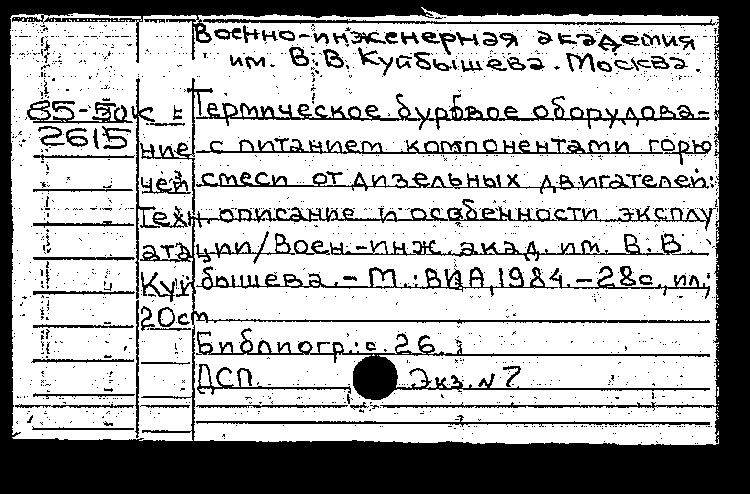 Военно-инженерная академия
им. В.В. Куйбышева. Москва.
85-50к =
2615
Термическое буровое оборудова=
ние с питанием компонентами горю
чей смеси от дизельных двигателей:
Техн. описание и особенности эксплу
атации/Воен.-инж. акад. им. В.В.
Куйбышева. - М.: ВИА, 1984. - 28с., ил.;
20см
Библиогр.: с. 26.
ДСП Экз. № 7